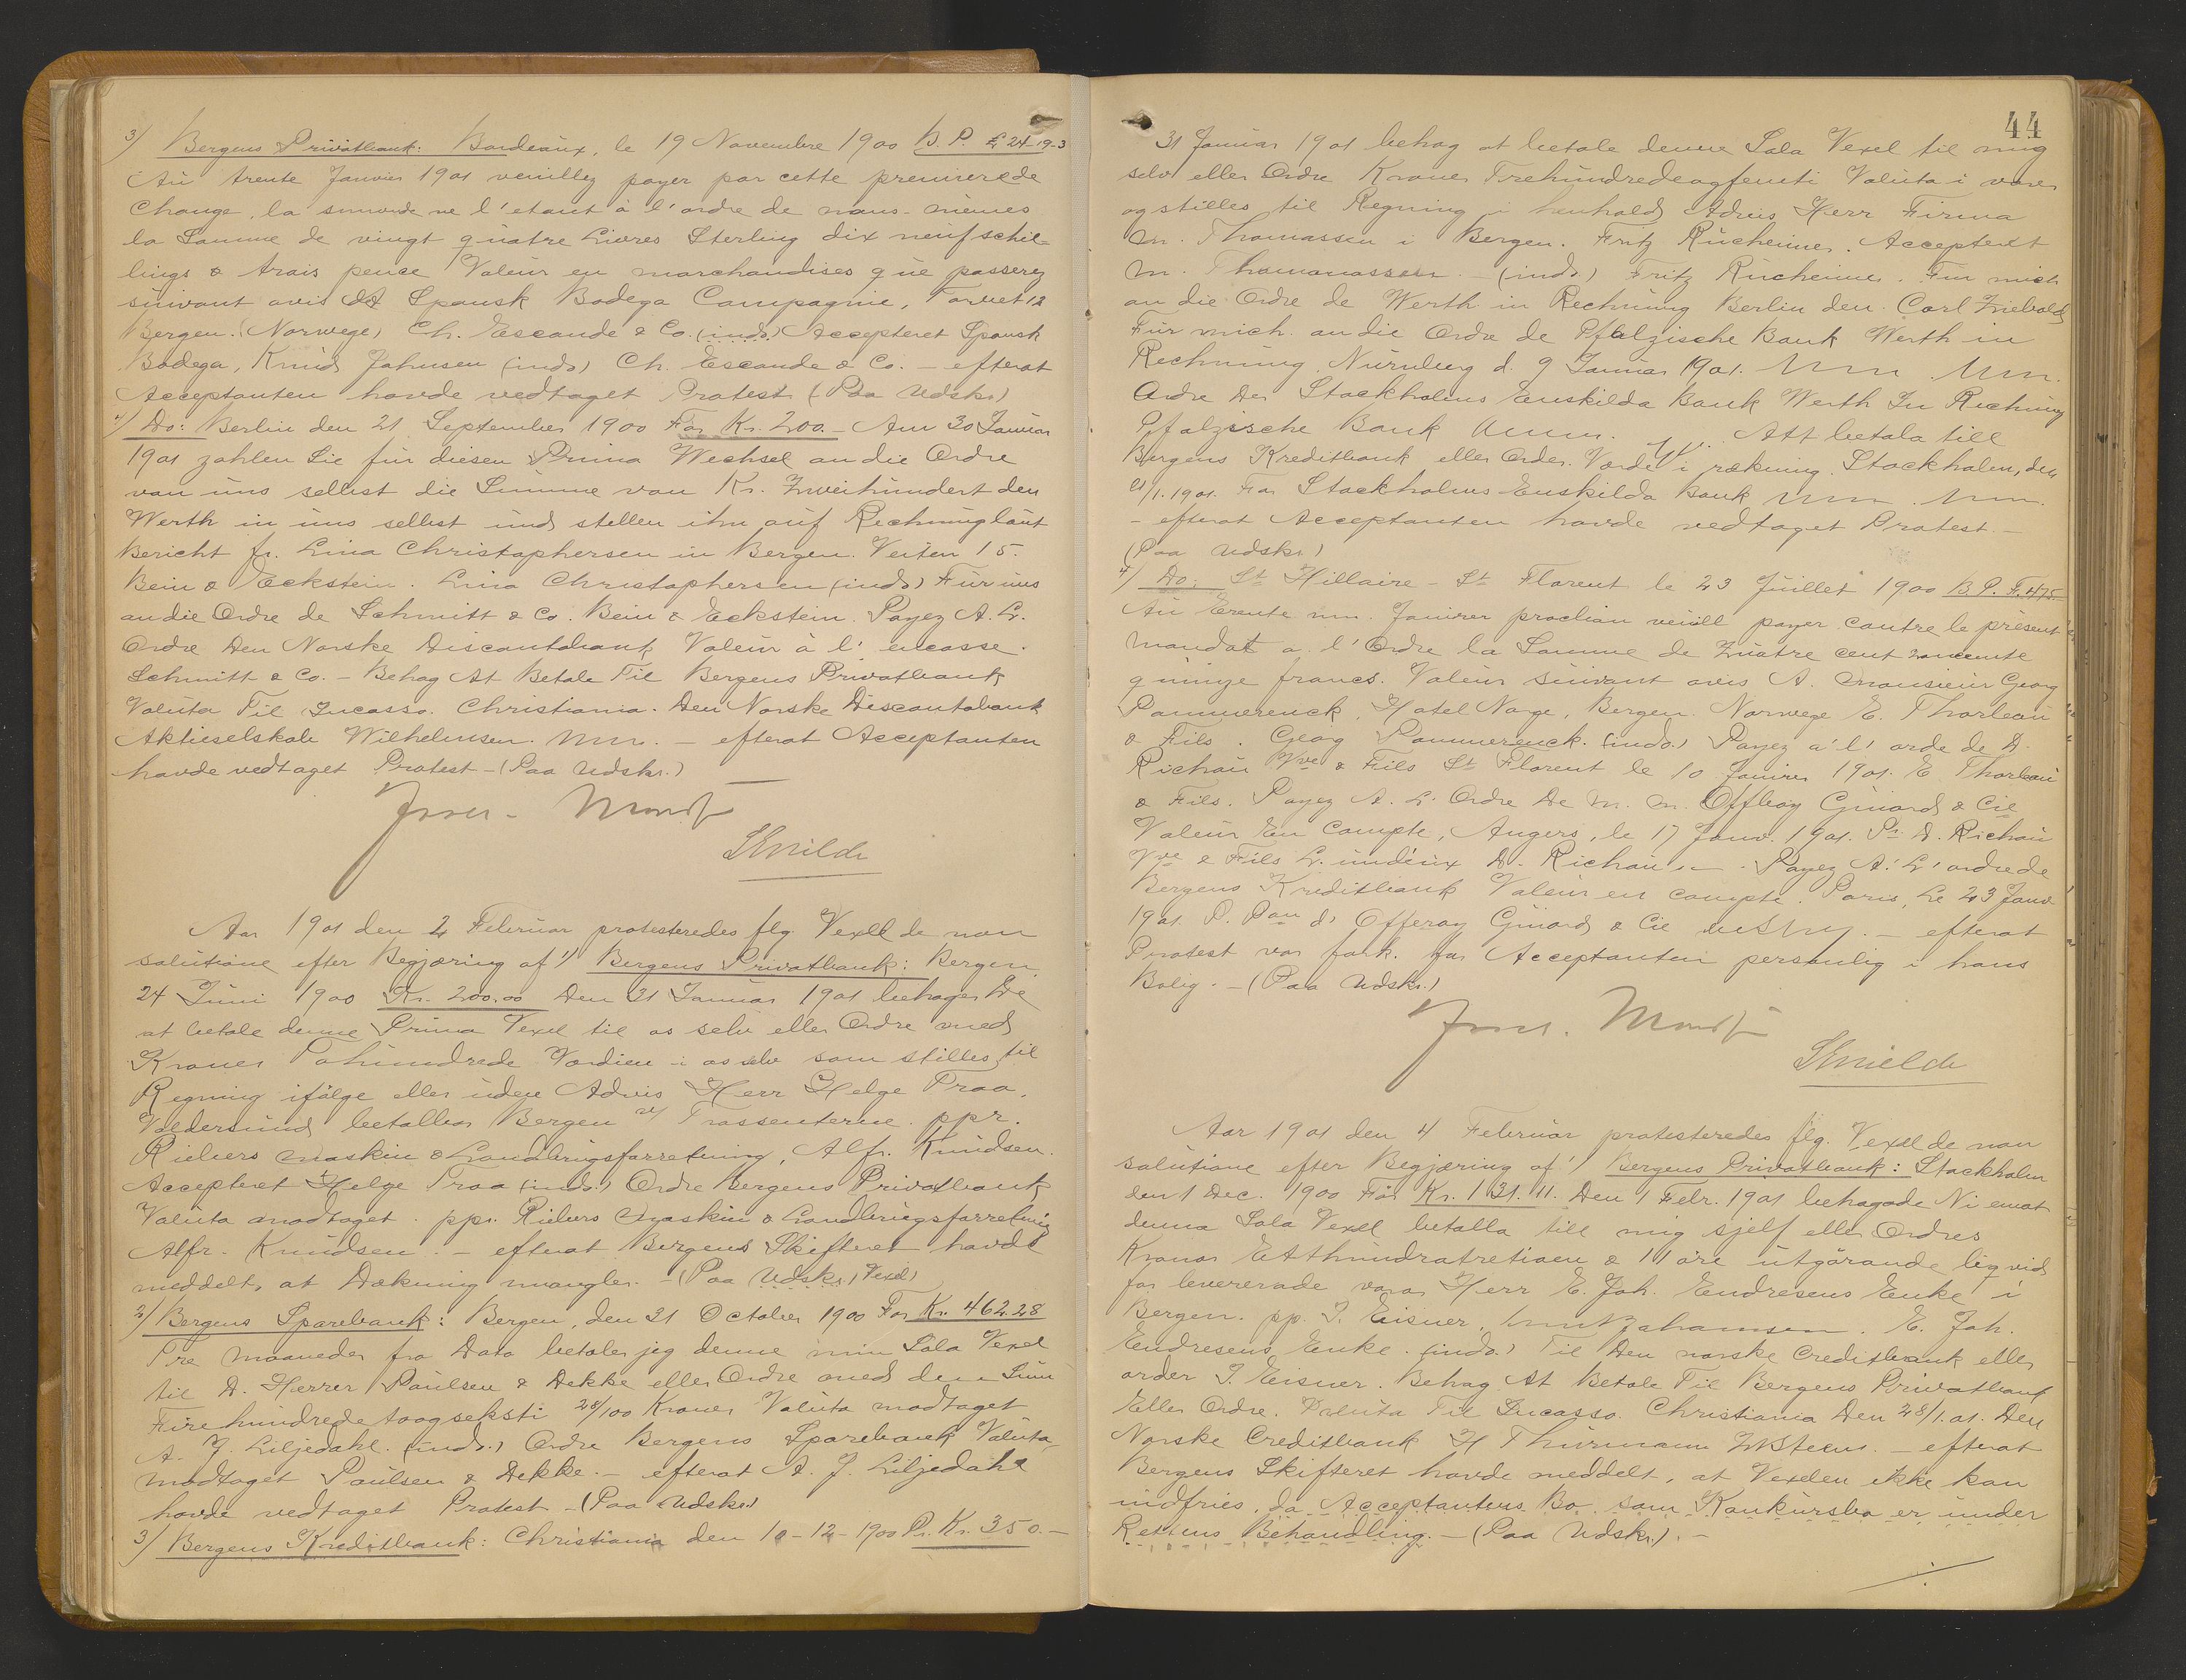 3) Bergens Privatbank: Bordeaux, le 19 Novembre 1900 B. P. £ 24-19-3
Au trente Janvier 1901 veuillez payer par cette premierede
Change, la seconde ne l'etant à l'ordre de nous-mêmes
la Somme de vingt quatre Livres Sterling dix neuf schil-
lings & trois pence Valeur en marchandises que passerez
suivant avis Spansk Bodega Compagnie, Torvet 12
Bergen. (Norwege) Ch. Escande & Co. (indo.) Accepteret Spansk
Bodega, Knud Johnsen (indo) Ch. Escande & Co. – efterat
Acceptanten havde vedtaget Protest (Paa Udskr.)
4) Do: Berlin den 21 September 1900 For Kr. 200.- Am 30 Januar
1901 zahlen Sie für diesen Prima Wechsel an die Ordre
von uns selbst die Summe von Kr. Zweihundert den
Werth in uns selbst und stellen ihn auf Rechnung laut
Bericht fr. Lina Christophersen in Bergen. Veiten 15.
Bein & Eckstein. Lina Christophersen (indo) Für uns
an die Ordre de Schmitt & Co. Bein & Eckstein. Payez A. L.
Ordre Den Norske Discontobank Valeur à l' encasse.
Schmitt & Co. – Behag At Betale Til Bergens Privatbank
Valuta Til Incasso. Christiania. Den Norske Discontobank
Aktieselskab Wilhelmsen. – efterat Acceptanten
havde vedtaget Protest – (Paa Udskr.)
Skrilde
Aar 1901 den 2 Februar protesteredes flg. Vexel de non
solutione efter Begjæring af 1) Bergens Privatbank: Bergen,
24 Juni 1900 Kr. 200.00 Den 31 Januar 1901 behager De
at betale denne Prima Vexel til os selv eller Ordre med
Kroner Tohundrede Værdien i os selv som stilles til
Regning ifølge eller uden Advis Herr Helge Traa,
Valdersund betalbar Bergen v/ Trassenterne. ppr.
Riebers Maskin & Landbrugsforretning, Alfr. Knudsen.
Accepteret Helge Traa (indo.) Ordre Bergens Privatbank
Valuta modtaget. ppr. Riebers Maskin & Landbrugsforretning
Alfr. Knudsen. – efterat Bergens Skifteret havde
meddelt, at Dækning mangler. – (Paa Udskr.) Vexel)
2) Bergens Sparebank: Bergen, den 31 October 1900 For Kr. 462.28
Tre maaneder fra Dato betaler jeg denne min Sola Vexel
til D. Herrer Paulsen & Dekke eller Ordre med den Sum
Firehundrede toogseksti 28/100 Kroner Valuta modtaget
A. J. Liljedahl. (indo.) Ordre Bergens Sparebank Valuta
modtaget Paulsen & Dekke. – efterat A. J. Liljedahl
havde vedtaget Protest – (Paa Udskr.)
3) Bergens Kreditbank: Christiania den 10-12-1900 Pr. Kr. 350.–
44
31 Januar 1901 behag at betale denne Sola Vexel til mig
selv eller Ordre Kroner Trehundredeogfemti Valuta i varer
og stilles til Regning i henhold Advis Herr Firma
M. Thomassen i Bergen. Fritz Rücheimer. Acceptert
M. Thomanassen. – (indo) Fritz Rücheimer. Für mich
an die Ordre de Werth in Rechnung Berlin den Carl
Für mich an die Ordre de Pfalzische Bank Werth in
Rechnung. Nürnberg d. 9 Januar 1901.
Ordre Der Stockholms Enskilda Bank Werth In Rechnung
Pfalzische Bank Att betala till
Bergens Kreditbank eller Order. Värde i räkning. Stockholm, den
21/1. 1901. For Stockholms Enskilda Bank
– efterat Acceptanten havde vedtaget Protest –
(Paa Udskr.)
4) Do: St Hillaire – St Florent le 23 Juillet 1900 B. P. F. 475.
Au Trente Janvier prochain payer contre le présent
mandat a l'Ordre la Somme de Quatre cent
quinze francs. Valeur suivant avis A. Monsieur Georg
Pommerenck, Hotel Norge, Bergen. Norwege E. Thorleau
& Fils. Georg Pommerenck. (indo.) Payez a' l' orde de D.
Richau Vve & Fils St Florent le 10 Janvier 1901. E. Thorleau
& Fils. Payez A. L. Ordre De M. M. Offroy Guiard & Cie
Valeur En Compte, Angers, le 17 Janv. 1901. Pr D. Richau
Vve & Fils D. Richau. Payez A' L' ordre de
Bergens Kreditbank Valeur en compte. Paris, Le 23 Janv.
1901. P. Offeroy Guiard & Cie – efterat
Protest var fork. for Acceptanten personlig i hans
Bolig. – (Paa Udskr.)
Skrilde
Aar 1901 den 4 Februar protesteredes flg. Vexel de non
solutione efter Begjæring af 1) Bergens Privatbank: Stockholm
den 1 Dec. 1900 För Kr. 131.11. Den 1 Febr. 1901 behagade Ni emot
denna Sola Vexel betalla till mig sjelf eller Ordres
Kronor Etthundratretioen & 11 öre utgörande liqvid
for levererade varor Herr E. Joh. Endresens Enke i
Bergen. pp. J. Eisner, E. Joh.
Endresens Enke. (indo.) Til Den norske Creditbank eller
order J. Eisner. Behag At Betale Til Bergens Privatbank
Eller Ordre. Valuta Til Incasso. Christiania Den 28/1.01. Den
Norske Creditbank H Thurmann – efterat
Bergens Skifteret havde meddelt, at Vexelen ikke kan
indfries, da Acceptantens Bo, som Konkursbo er under
Rettens Behandling. – (Paa Udskr.). –